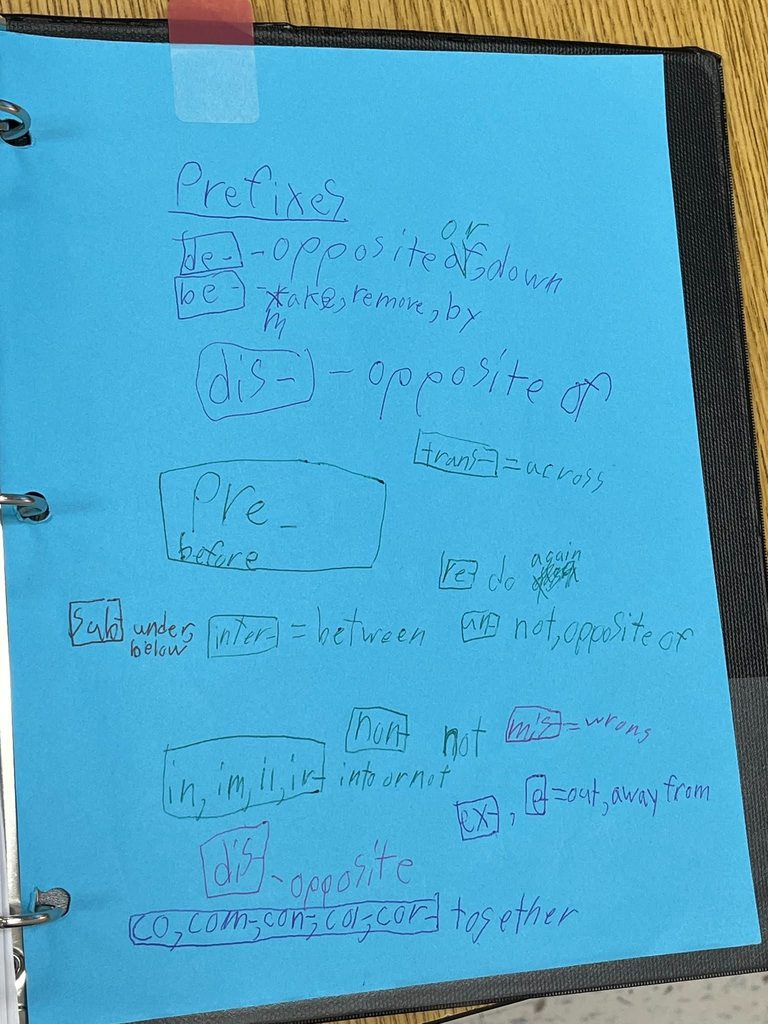 Prefixes
de- - opposite of, or down
be- - make, remove, by
dis- - opposite of
trans- = across
Pre-
before
re- do again
Sub- under, below
inter- = between
un- not, opposite of
non- not
mis = wrong
in, im, il, ir- into or not
ex-, e- = out, away from
dis- - opposite
co, com-, con-, col-, cor- together